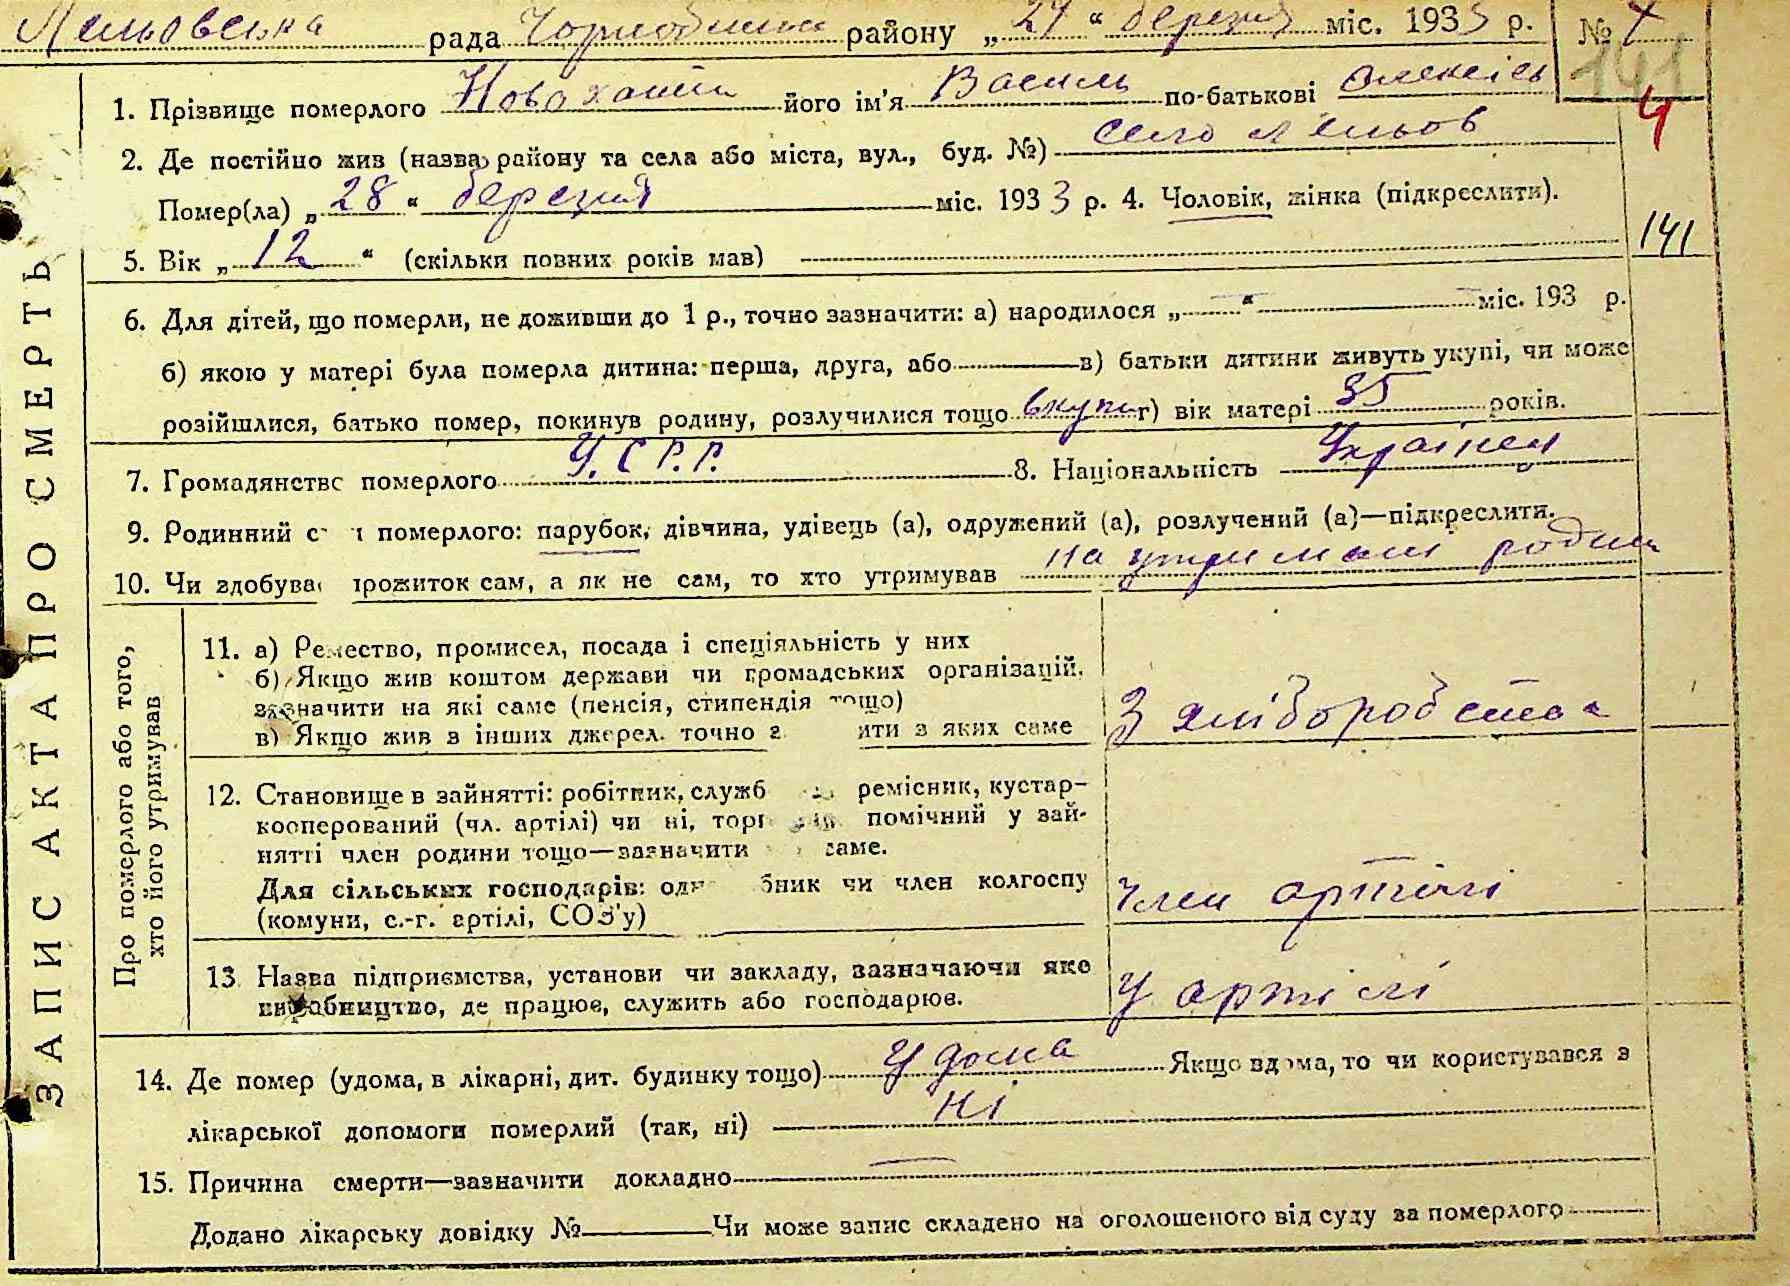 Лельовська рада Чорнобильс району „29“ березня міс. 1933 р. №
141
4
1. Прізвище померлого його ім'я Василь по-батькові Олексієв
2. Де постійно жив (назва району та села або міста, вул., буд. №) село Лельов
Помер(ла) „28“ березня міс. 1933 р. 4. Чоловік, жінка (підкреслити).
5. Вік „12“ (скільки повних років мав)
141
6. Для дітей, що померли, не доживши до 1 р., точно зазначити: а) народилося „—“ — міс. 193 р.
б) якою у матері була померла дитина: перша, друга, або в) батьки дитини живуть укупі, чи може
розійшлися, батько помер, покинув родину, розлучилися тощо вкупі г) вік матері 35 років.
7. Громадянство померлого У.С.Р.Р. 8. Національність Українец
9. Родинний с померлого: парубок, дівчина, удівець (а), одружений (а), розлучений (а)—підкреслити.
10. Чи здобував прожиток сам, а як не сам, то хто утримував на утримані родини
ЗАПИС АКТА ПРО СМЕРТЬ
Про померлого або того,
хто його утримував
11. а) Ремество, промисел, посада і спеціяльність у них
б) Якщо жив коштом держави чи громадських організацій,
зазначити на які саме (пенсія, стипендія тощо)
в) Якщо жив з інших джерел, точно з ити з яких саме
З хліборобства
12. Становище в зайнятті: робітник, служб ремісник, кустар-
кооперований (чл. артілі) чи ні, торг помічний у зай-
нятті член родини тощо—зазначити саме.
Для сільських господарів: одн бник чи член колгоспу
(комуни, с.-г. артілі, СОЗ'у)
Член артілі
13. Назва підприємства, установи чи закладу, зазначаючи яке
виробництво, де працює, служить або господарює.
У артілі
14. Де помер (удома, в лікарні, дит. будинку тощо) У дома Якщо вдома, то чи користувався з
лікарської допомоги померлий (так, ні) ні
15. Причина смерти—зазначити докладно —
Додано лікарську довідку № Чи може запис складено на оголошеного від суду за померлого